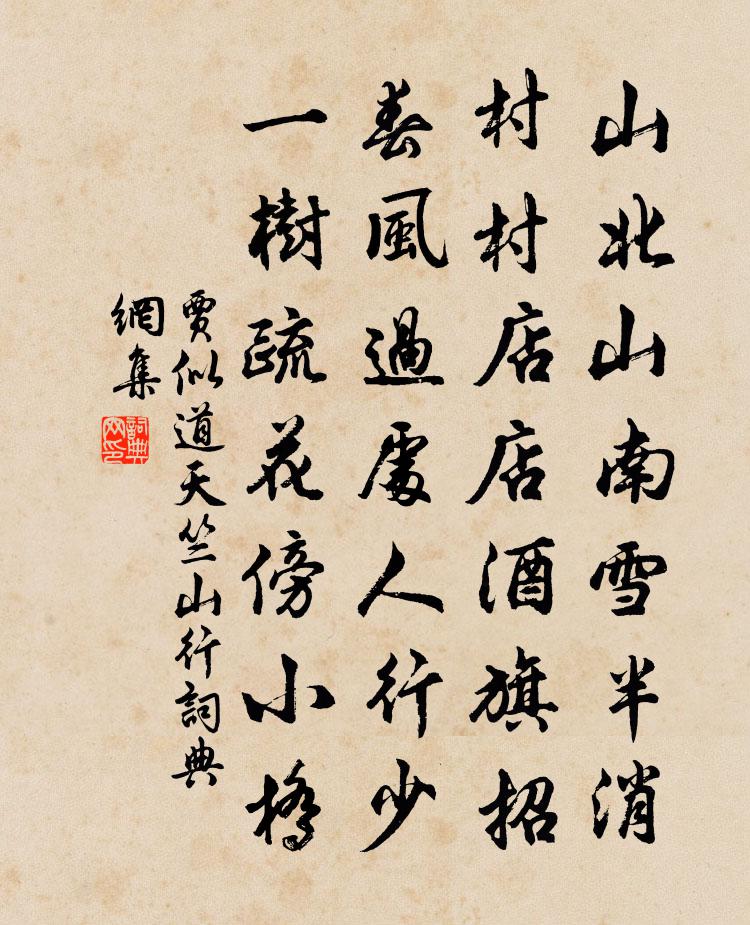 山北山南雪半消
村村店店酒旗招
春風過處人行少
一樹疏花傍小橋
賈似道天竺山行詞典
網集
詞典網印